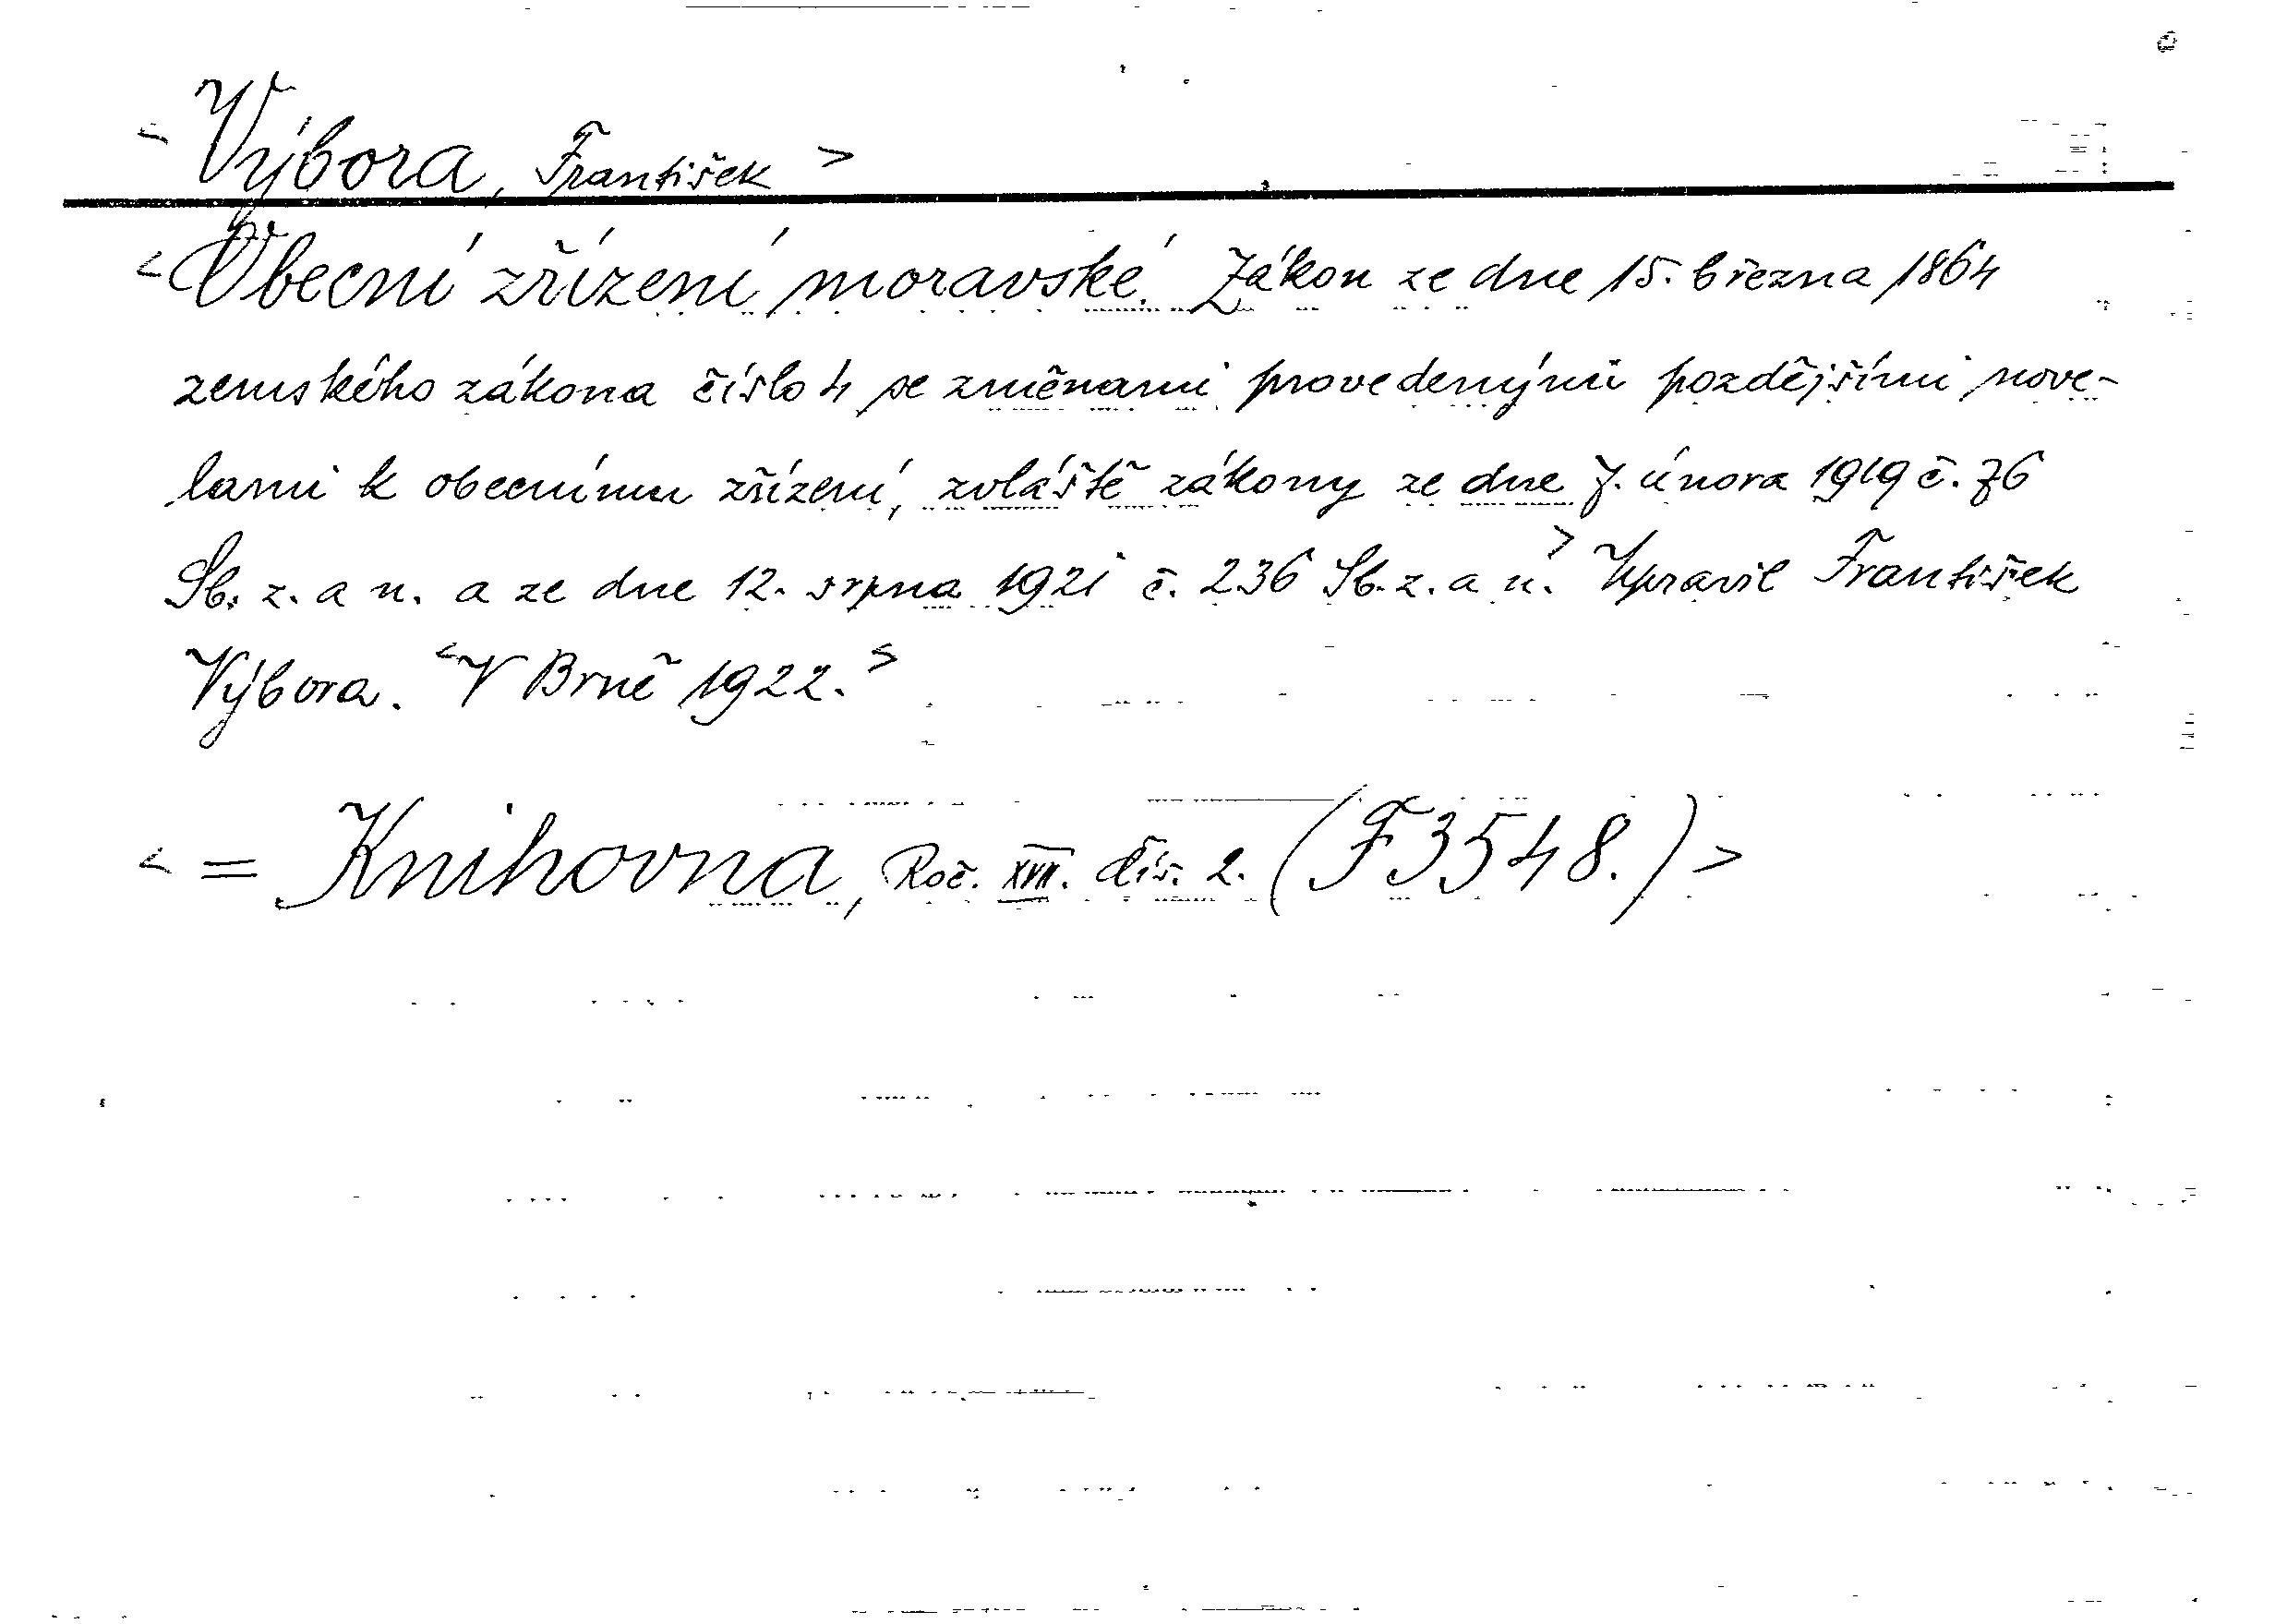 < Výbora, František >
< Obecní zřízení moravské. Zákon ze dne 15. března 1864
zemského zákona číslo 4 se změnami provedenými pozdějšími nove-
lami k obecnímu zřízení, zvláště zákony ze dne 7. února 1919 č. 76
Sb. z. a n. a ze dne 12. srpna 1921 č. 236 Sb. z. a n. > Upravil František
Výbora. < V Brně 1922. >
< = Knihovna, Roč. XVII. čís. 2. (F 3548.) >